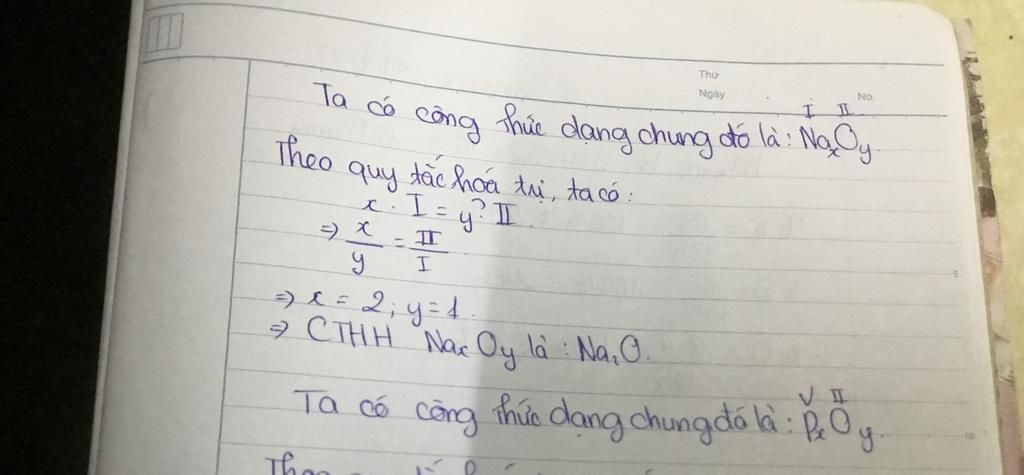 Thứ
Ngày
No.
I II
Ta có công thức dạng chung đó là: NaxOy.
Theo quy tắc hoá trị, ta có:
x . I = y . II
=> x/y = II/I
5
=> x = 2; y = 1.
=> CTHH NaxOy là: Na2O.
V II
Ta có công thức dạng chung đó là: PxOy.
10
Theo